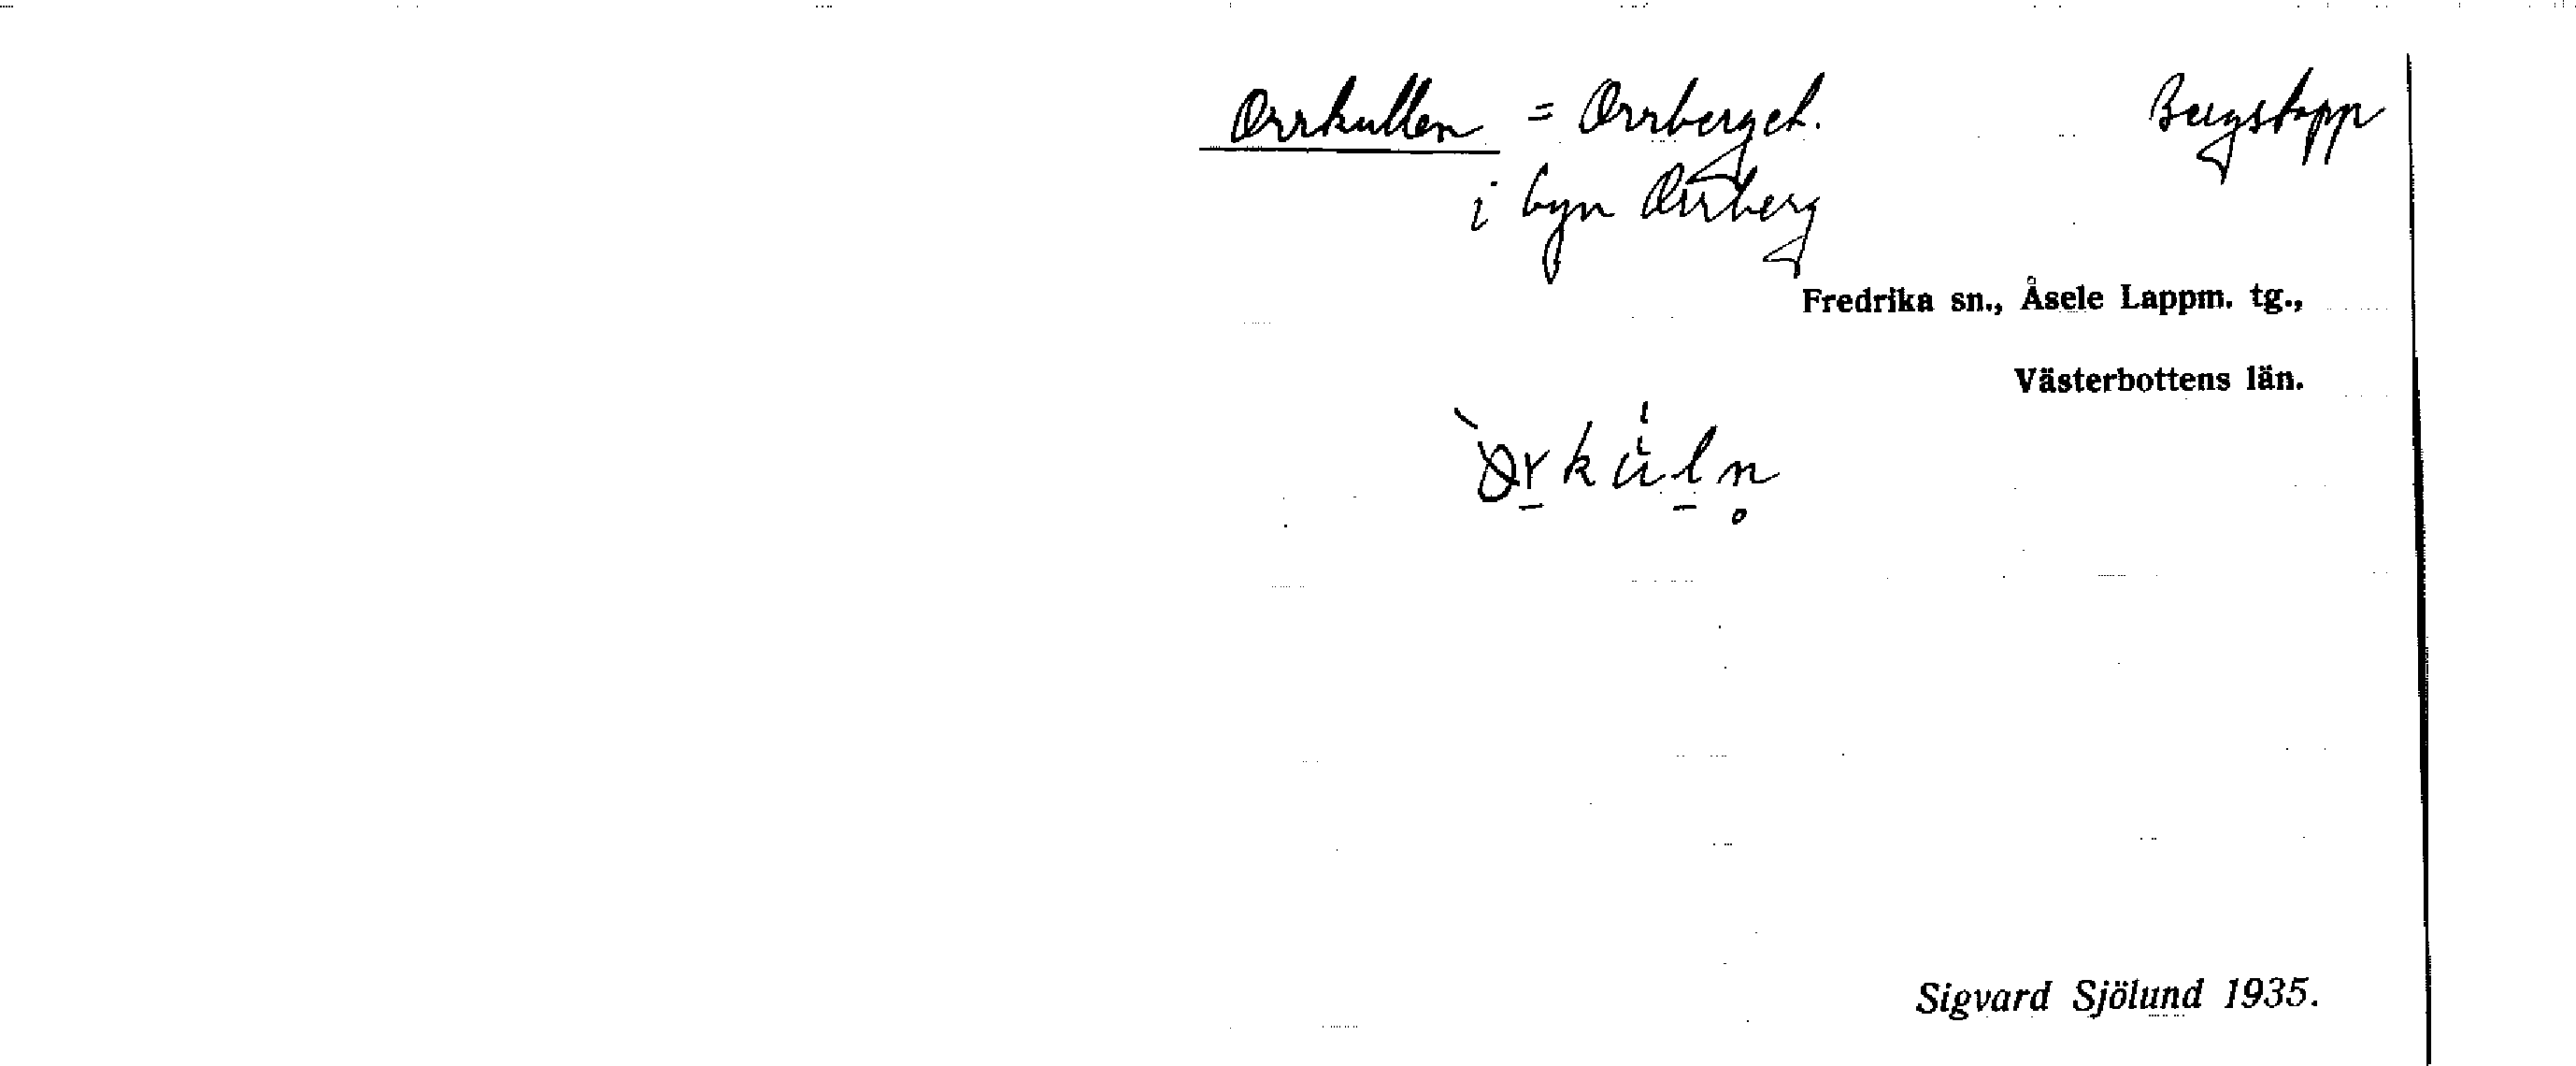 Orrkullen = Orrberget. Bergstopp
i byn Orrberg
Fredrika sn., Åsele Lappm. tg.,
Västerbottens län.
Sigvard Sjölund 1935.